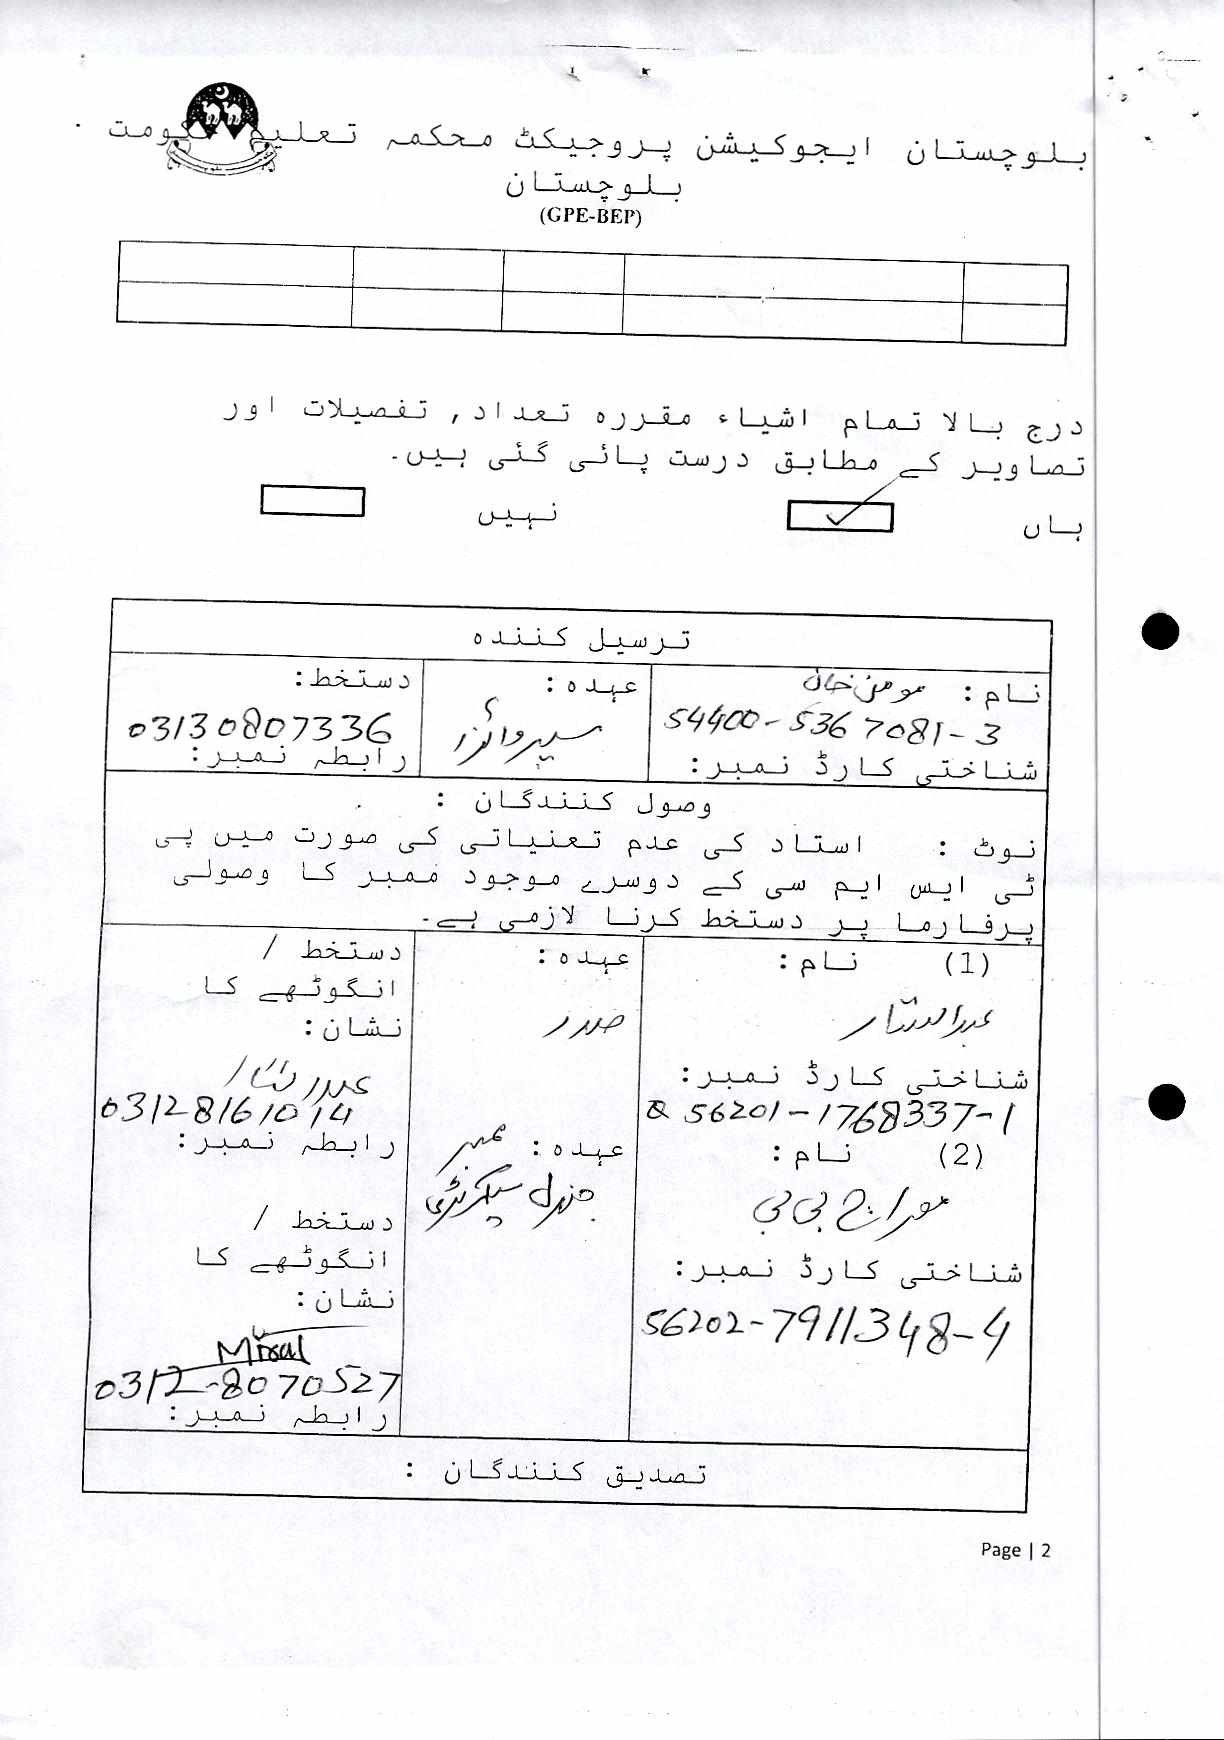 بلوچستان ایجوکیشن پروجیکٹ محکمہ تعلیم حکومت
بلوچستان
(GPE-BEP)
درج بالا تمام اشیاء مقررہ تعداد, تفصیلات اور
تصاویر کے مطابق درست پائی گئی ہیں۔
ہاں نہیں
ترسیل کنندہ
نام: مومن خان
54400-5367081-3
شناختی کارڈ نمبر:
عہدہ:
سپروائزر
دستخط:
03130807336
رابطہ نمبر:
وصول کنندگان :
نوٹ : استاد کی عدم تعنیاتی کی صورت میں پی
ٹی ایس ایم سی کے دوسرے موجود ممبر کا وصولی
پرفارما پر دستخط کرنا لازمی ہے۔
(1) نام:
عبدالستار
شناختی کارڈ نمبر:
56201-1768337-1
عہدہ:
صدر
دستخط /
انگوٹھے کا
نشان:
03128161014
رابطہ نمبر:
(2) نام:
معراج بی بی
شناختی کارڈ نمبر:
56202-7911348-4
عہدہ: ممبر
جنرل سیکرٹری
دستخط /
انگوٹھے کا
نشان:
0312-8070527
رابطہ نمبر:
تصدیق کنندگان :
Page | 2